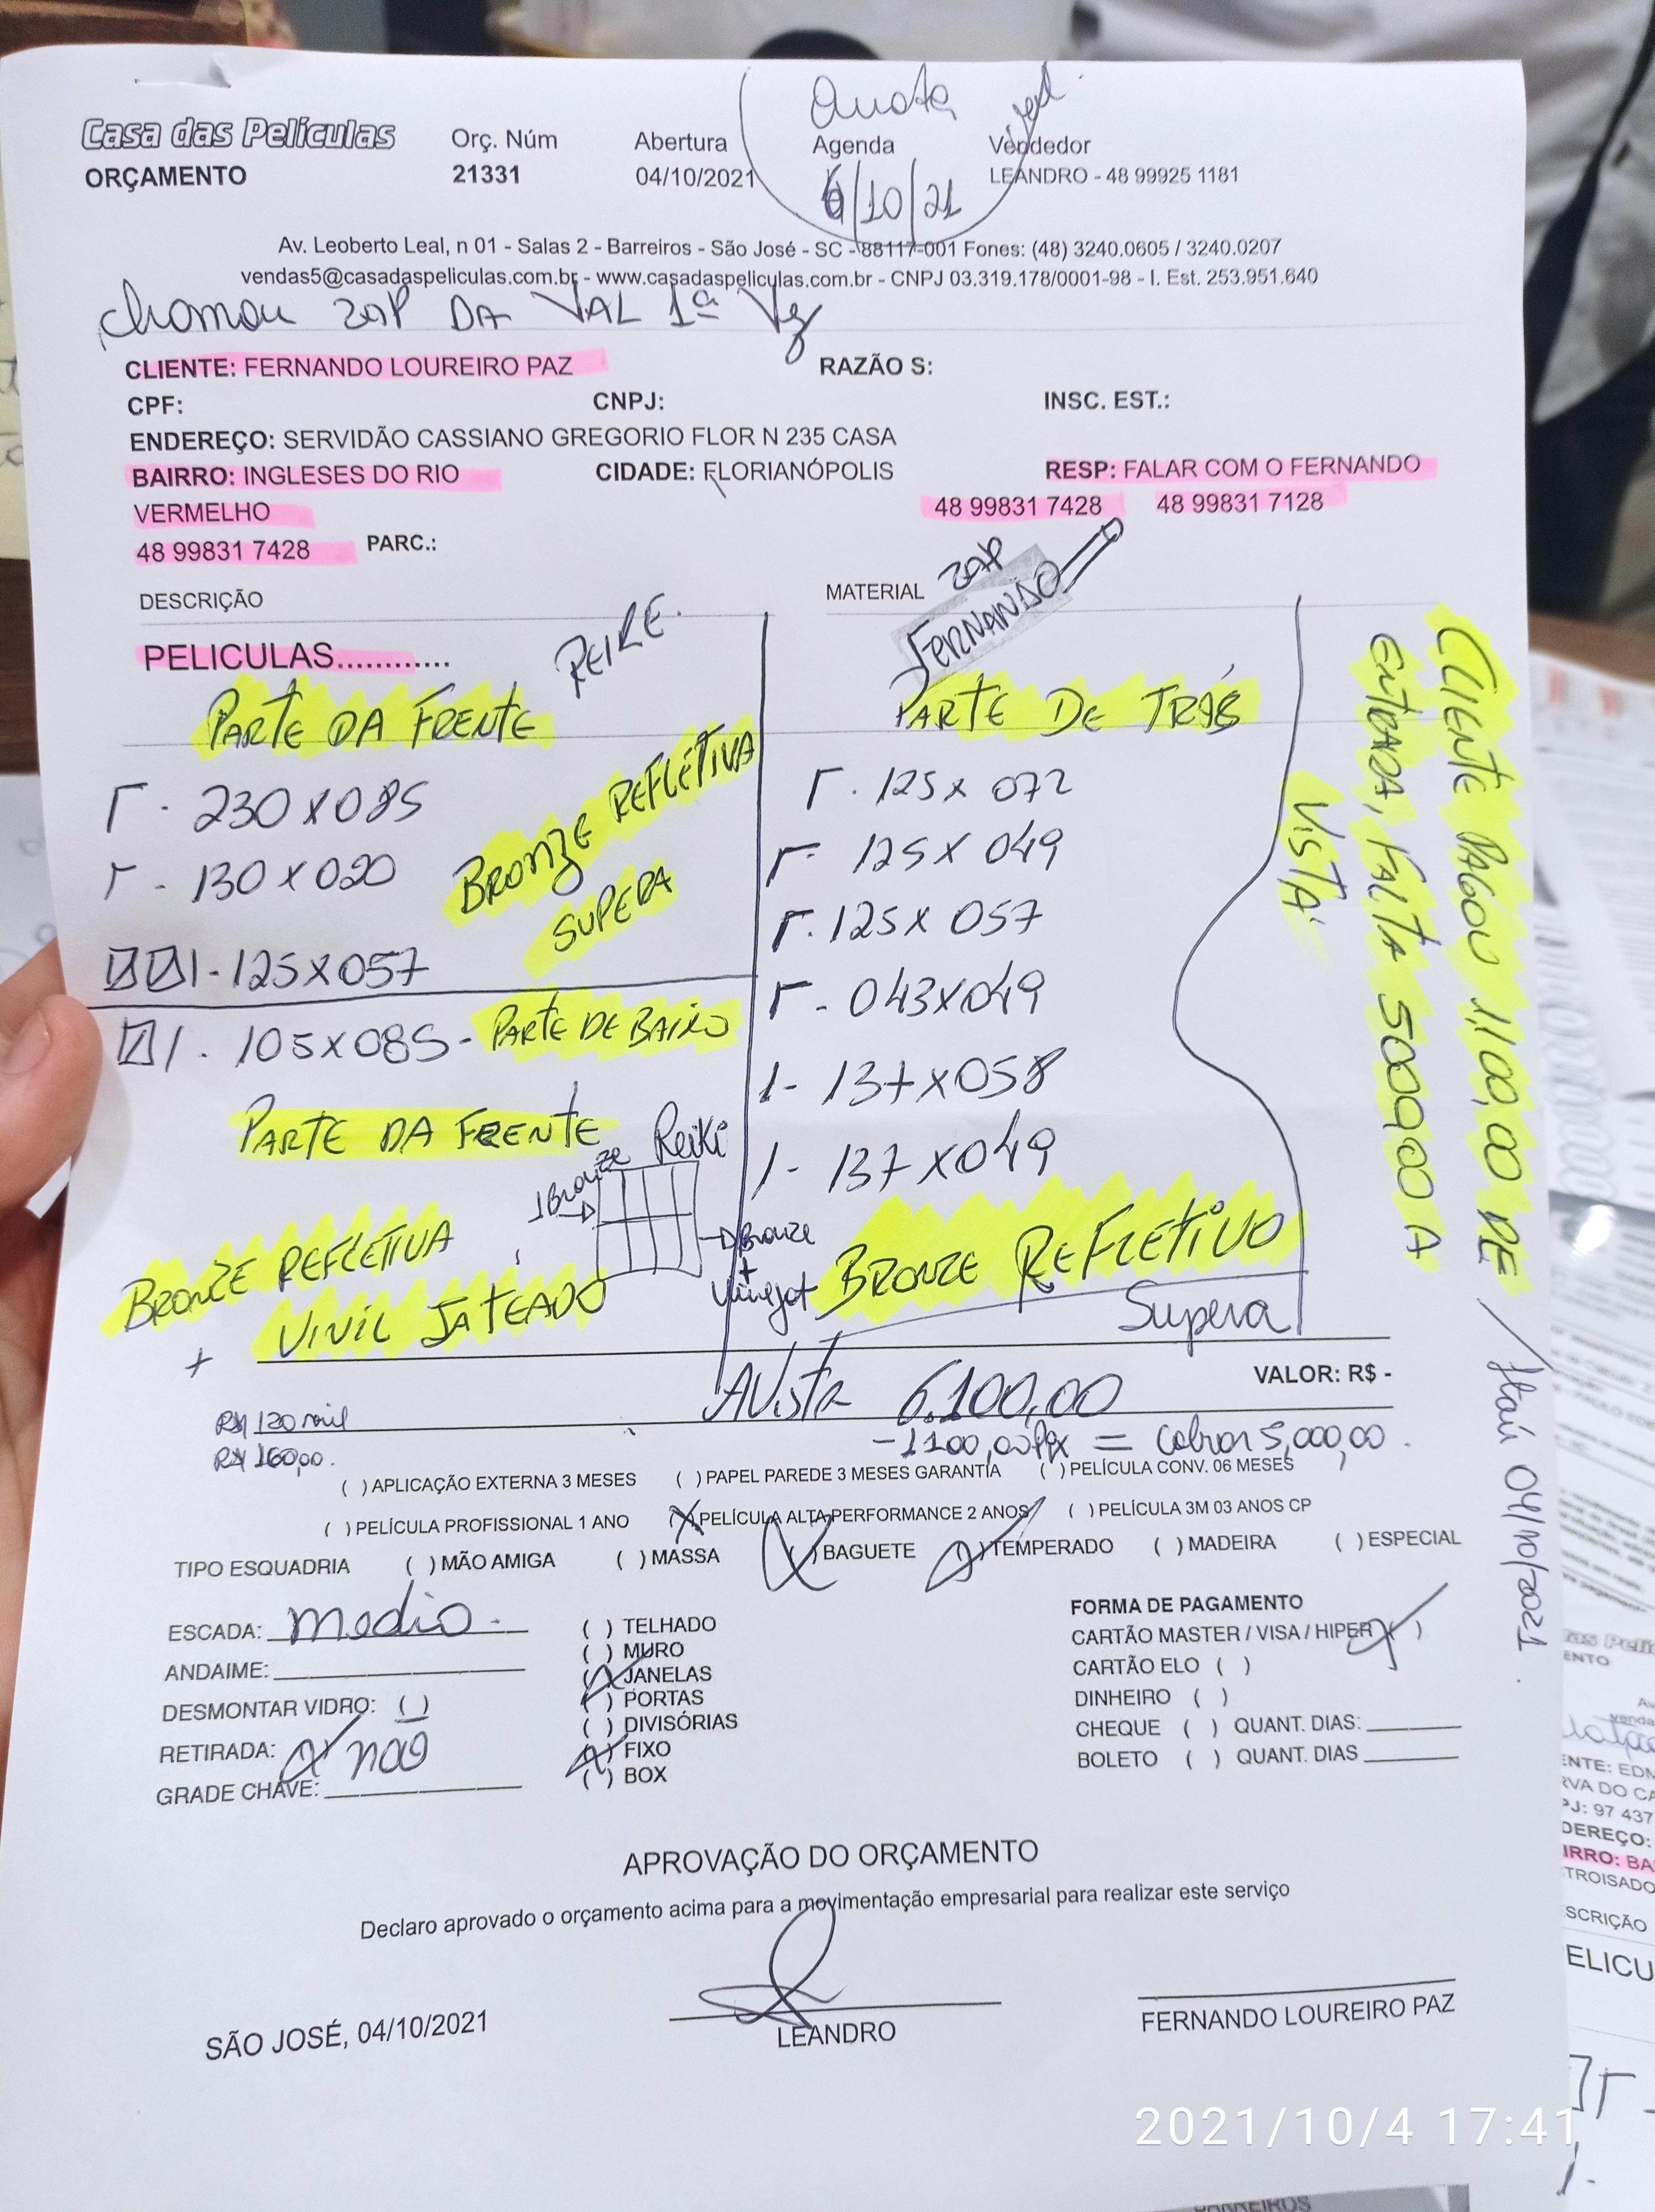 Quarta
Casa das Películas Orç. Núm Abertura Agenda Vendedor
ORÇAMENTO 21331 04/10/2021 6/10/21 LEANDRO - 48 99925 1181
Av. Leoberto Leal, n 01 - Salas 2 - Barreiros - São José - SC - 88117-001 Fones: (48) 3240.0605 / 3240.0207
vendas5@casadaspeliculas.com.br - www.casadaspeliculas.com.br - CNPJ 03.319.178/0001-98 - I. Est. 253.951.640
chamou ZAP DA VAL 1ª Vez
CLIENTE: FERNANDO LOUREIRO PAZ RAZÃO S:
CPF: CNPJ: INSC. EST.:
ENDEREÇO: SERVIDÃO CASSIANO GREGORIO FLOR N 235 CASA
BAIRRO: INGLESES DO RIO CIDADE: FLORIANÓPOLIS RESP: FALAR COM O FERNANDO
VERMELHO 48 99831 7428 48 99831 7128
48 99831 7428 PARC.:
ZAP
FERNANDO
DESCRIÇÃO MATERIAL
PELICULAS............
PARTE DA FRENTE
230 X 085
130 X 020
BRONZE REFLETIVA
SUPERA
1 - 125 X 057
1 - 105 X 085 - PARTE DE BAIXO
PARTE DA FRENTE
Bronze Reiki
Bronze
+
Vinijat
BRONZE REFLETIVA
+ VINIL JATEADO
PARTE DE TRÁS
125 X 072
125 X 049
125 X 057
043 X 049
1 - 137 X 058
1 - 137 X 049
BRONZE REFLETIVO
Supera
CLIENTE PAGOU 1.100,00 DE
ENTRADA, FALTA 5000,00 A
VISTA
04/10/2021
AVISTA 6.100,00 VALOR: R$ -
R$ 120 mil
- 1100,00 Pix = Cobrar 5,000,00.
R$ 160,00.
( ) APLICAÇÃO EXTERNA 3 MESES ( ) PAPEL PAREDE 3 MESES GARANTIA ( ) PELÍCULA CONV. 06 MESES
( ) PELÍCULA PROFISSIONAL 1 ANO (X) PELÍCULA ALTA PERFORMANCE 2 ANOS ( ) PELÍCULA 3M 03 ANOS CP
TIPO ESQUADRIA ( ) MÃO AMIGA ( ) MASSA (X) BAGUETE (X) TEMPERADO ( ) MADEIRA ( ) ESPECIAL
ESCADA: media.
ANDAIME:
DESMONTAR VIDRO: ( )
RETIRADA: (X) não
GRADE CHAVE:
( ) TELHADO
( ) MURO
(X) JANELAS
( ) PORTAS
( ) DIVISÓRIAS
(X) FIXO
( ) BOX
FORMA DE PAGAMENTO
CARTÃO MASTER / VISA / HIPER (X)
CARTÃO ELO ( )
DINHEIRO ( )
CHEQUE ( ) QUANT. DIAS:
BOLETO ( ) QUANT. DIAS
APROVAÇÃO DO ORÇAMENTO
Declaro aprovado o orçamento acima para a movimentação empresarial para realizar este serviço
SÃO JOSÉ, 04/10/2021 LEANDRO FERNANDO LOUREIRO PAZ
2021/10/4 17:41